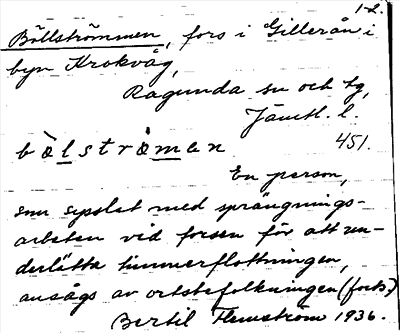 1-2.
Böllströmmen, fors i Gillerån i
byn Krokvåg,
Ragunda sn och tg,
Jämtl. l.
bòlstròmen 451.
En person,
som sysslat med sprängnings-
arbeten vid forsen för att un-
derlätta timmerflottningen,
ansågs av ortsbefolkningen (forts.)
Bertil Flemström 1936.